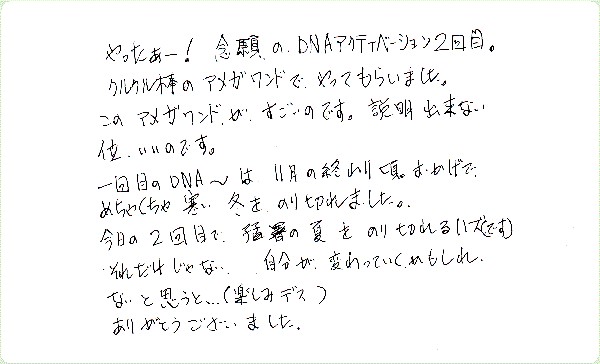 やったぁー！ 念願の DNAアクティベーション2回目。
クルクル棒のアメガワンドで やってもらいました。
このアメガワンドが すごいのです。説明出来ない
位、いいのです。
一回目のDNA〜は 11月の終わり頃。おかげで
めちゃくちゃ寒い 冬を のり切れました。
今日の2回目で、猛暑の夏を のり切れる(ハズです)
それだけじゃない 自分が、変わっていくかもしれ
ないと思うと…(楽しみデス)
ありがとうございました。